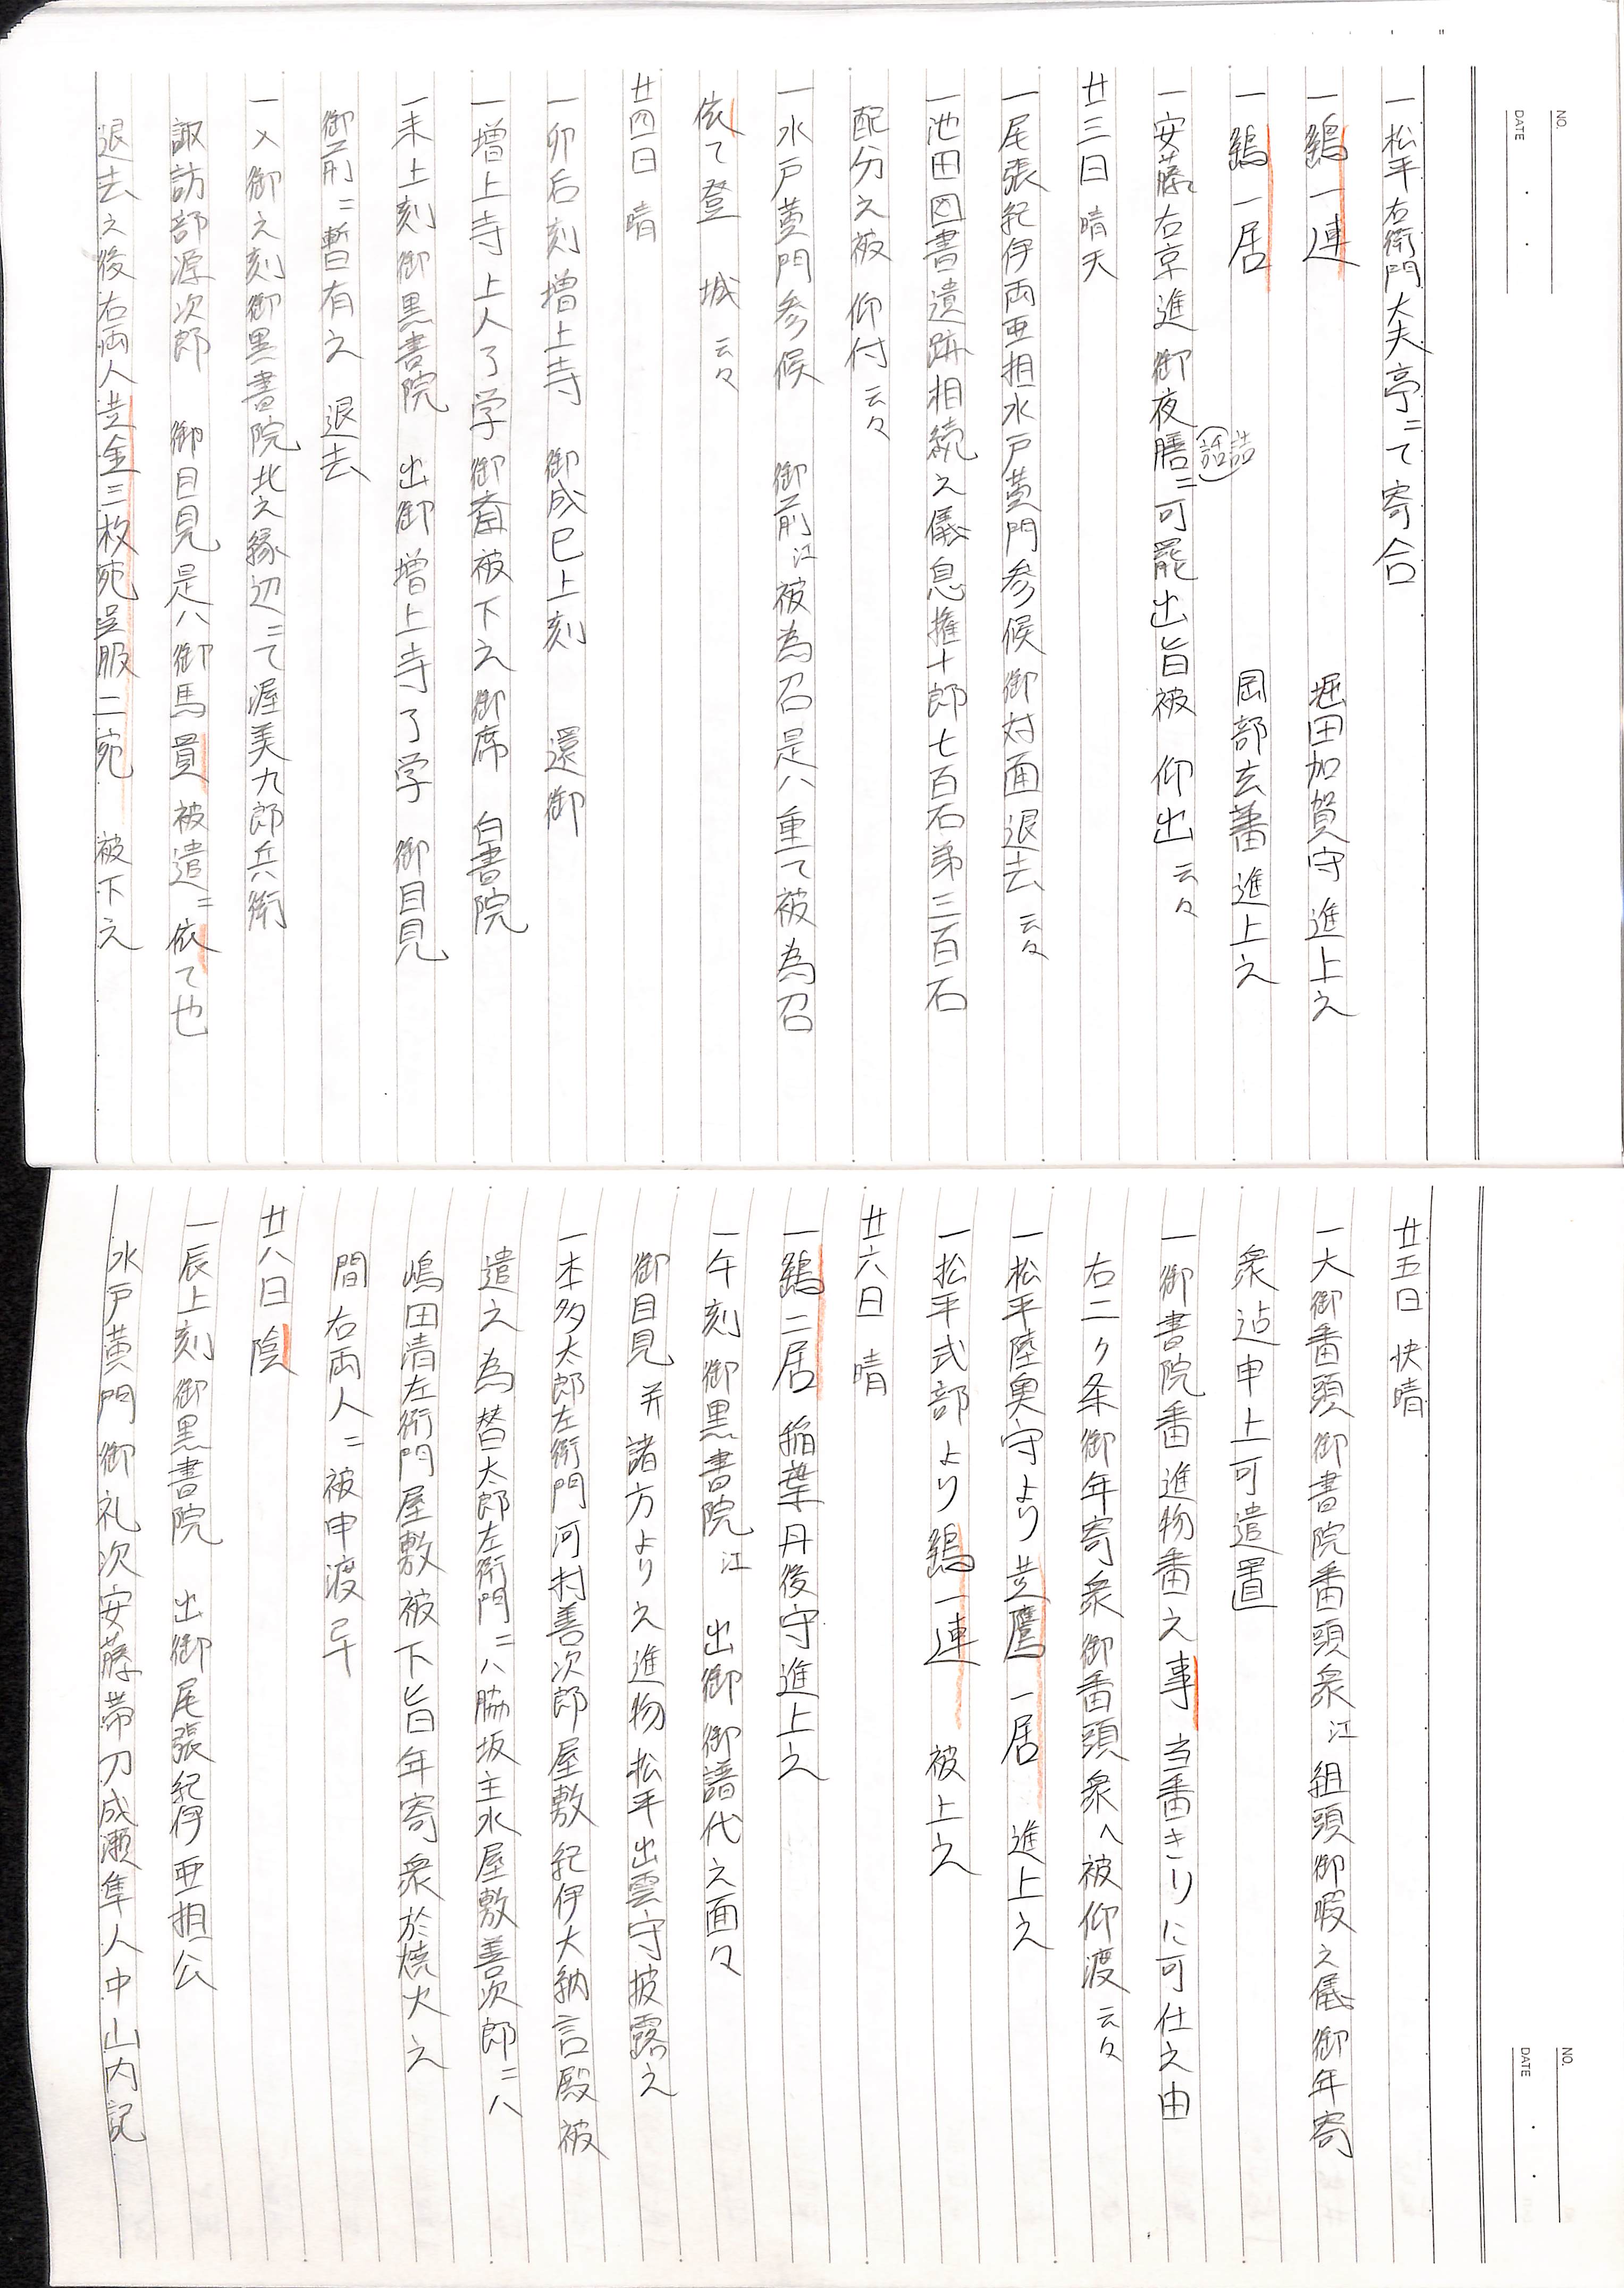 NO.
DATE
一松平右衛門大夫亭ニて寄合
一鷂一連 堀田加賀守進上之
一鷂一居 岡部玄蕃進上之
一安藤右京進 御夜膳ニ可罷出旨被 仰出云々
(話詰)
廿三日 晴天
一尾張紀伊両亜相水戸黄門参候御対面退去云々
一池田図書遺跡相続之儀息権十郎七百石弟三百石
配分之被 仰付云々
一水戸黄門参候 御前江被為召是ハ重て被為召
依て登 城云々
廿四日 晴
一卯后刻増上寺 御成巳上刻 還御
一増上寺上人了学御斎被下之御席 白書院
一未上刻御黒書院 出御増上寺了学 御目見
御前ニ暫有之 退去
一入御之刻御黒書院北之縁辺ニて渥美九郎兵衛
諏訪部源次郎 御目見是ハ御馬買被遣ニ依て也
退去之後右両人黄金三枚宛呉服二宛 被下之
NO.
DATE
廿五日 快晴
一大御番頭御書院番頭衆江組頭御暇之儀御年寄
衆迠申上可遣置
一御書院番進物番之事当番きりに可仕之由
右二ケ条御年寄衆御番頭衆へ被仰渡云々
一松平陸奥守より黄鷹一居 進上之
一松平式部より鷂一連 被上之
廿六日 晴
一鷂二居 稲葉丹後守進上之
一午刻御黒書院江 出御御譜代之面々
御目見并諸方より之進物松平出雲守披露之
一本多太郎左衛門河村善次郎屋敷紀伊大納言殿被
遣之為替太郎左衛門ニハ脇坂主水屋敷善次郎ニハ
嶋田清左衛門屋敷被下旨年寄衆於焼火之
間右両人ニ被申渡畢
廿八日 陰
一辰上刻御黒書院 出御尾張紀伊亜相公
水戸黄門御礼次安藤帯刀成瀬隼人中山内記